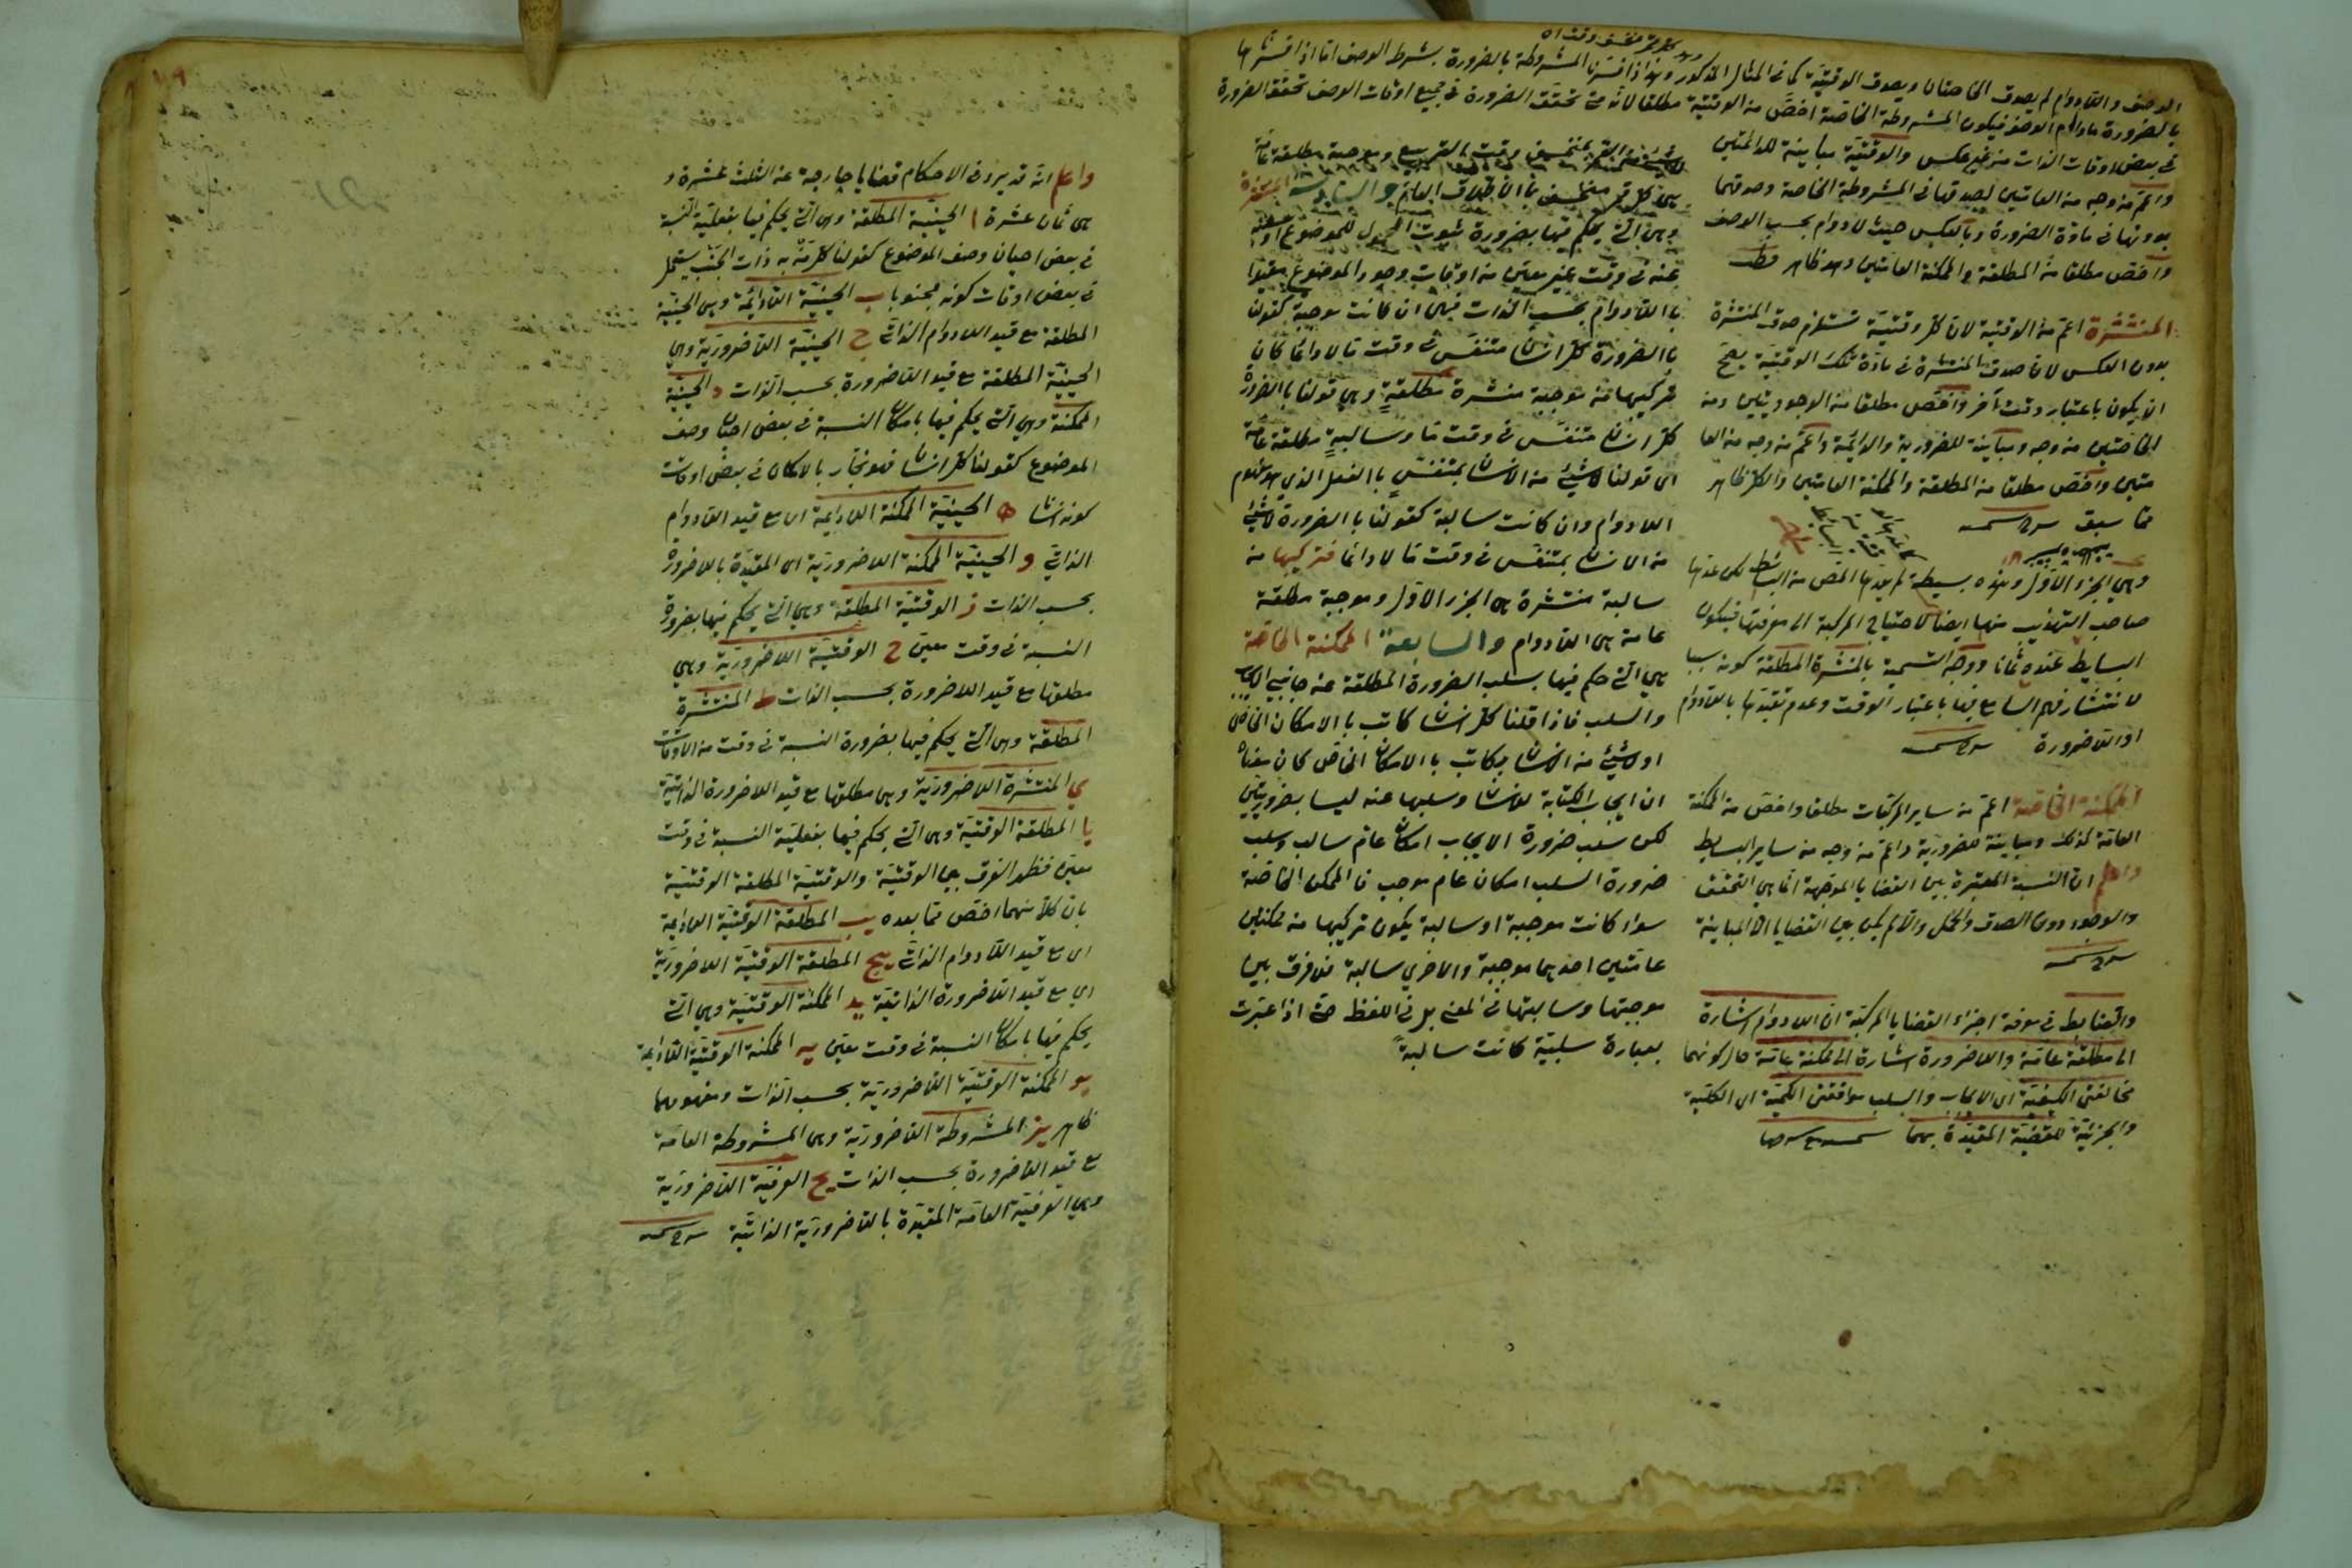 الوصف واللادوام لم يصدق الخاصتان ويصدق الوقتية كما في المثال المذكور وهذا اذا فسرنا المشروطة بالضرورة بشرط الوصف اما اذا فسرناها
بالضرورة مادام الوصف فيكون المشروطة الخاصة اخص من الوقتية مطلقا لانه متى تحقق الضرورة في جميع اوقات الوصف تحقق الضرورة
في بعض اوقات الذات من غير عكس والوقتية مباينة للدائمتين
واعم من وجه من العامتين لصدقها في المشروطة الخاصة وصدقهما
بدونها في مادة الضرورة وبالعكس حيث لا دوام بحسب الوصف
واخص مطلقا من المطلقة والممكنة العامتين وهو ظاهر
المنتشرة اعم من الوقتية لان كل وقتية تستلزم صدق المنتشرة
بدون العكس لان صدق المنتشرة في مادة تلك الوقتية يصح
ان يكون باعتبار وقت آخر واخص مطلقا من الوجوديتين ومن
الخاصتين من وجه ومباينة للضرورية والدائمة واعم من وجه من العا
متين واخص مطلقا من المطلقة والممكنة العامتين والكل ظاهر
مما سبق
وهي الجزء الاول وهذه بسيطة لم يعدها المص من البسائط لكن عدها
صاحب التهذيب منها ايضا لاحتياج المركبة الى معرفتها فيكون
البسايط عنده ثمانا ووجه التسمية بالمنتشرة المطلقة كونه سببا
لانتشار فهم السامع فيها باعتبار الوقت وعدم تقيدها باللادوام
او اللاضرورة
الممكنة الخاصة اعم من ساير المركبات مطلقا واخص من الممكنة
العامة كذلك ومباينة للضرورية واعم من وجه من ساير البسايط
واعلم ان النسبة المعتبرة بين القضايا الموجهة انما هي التحقق
والوجود دون الصدق والحمل والا لم يكن بين القضايا الا المباينة
والضابط في معرفة اجزاء القضايا المركبة ان اللادوام اشارة
الى مطلقة عامة واللاضرورة اشارة الى ممكنة عامة حال كونهما
مخالفتي الكيفية اى الايجاب والسلب موافقتي الكمية اى الكلية
والجزئية للقضية المقيدة بهما
بمنخسف وقت التربيع وموجبة مطلقة عامة
هي كل قمر منخسف بالاطلاق العام والسادسة المنتشرة
وهي التي يحكم فيها بضرورة ثبوت المحمول للموضوع او سلبه
عنه في وقت غير معين من اوقات وجود الموضوع مقيدا
باللادوام بحسب الذات فهي ان كانت موجبة كقولنا
بالضرورة كل انسان متنفس في وقت ما لا دائما كان
تركيبها من موجبة منتشرة مطلقة وهي قولنا بالضرورة
كل انسان متنفس في وقت ما وسالبة مطلقة عامة
اى قولنا لا شيئ من الانسان بمتنفس بالفعل الذي هو مفهوم
اللادوام وان كانت سالبة كقولنا بالضرورة لا شيئ
من الانسان بمتنفس في وقت ما لا دائما فتركيبها من
سالبة منتشرة هي الجزء الاول وموجبة مطلقة
عامة هي اللادوام والسابعة الممكنة الخاصة
هي التي حكم فيها بسلب الضرورة المطلقة عن جانبي الايجاب
والسلب فاذا قلنا كل انسان كاتب بالامكان الخاص
او لا شيئ من الانسان بكاتب بالامكان الخاص كان معناه
ان ايجاب الكتابة للانسان وسلبها عنه ليسا بضروريين
لكن سلب ضرورة الايجاب امكان عام سالب وسلب
ضرورة السلب امكان عام موجب فالممكن الخاصة
سواء كانت موجبة او سالبة يكون تركيبها من ممكنتين
عامتين احديهما موجبة والاخرى سالبة فلا فرق بين
موجبتها وسالبتها في المعنى بل في اللفظ حتى اذا عبرت
بعبارة سلبية كانت سالبة
واعلم انه قد يرد في الاحكام قضايا خارجة عن الثلث عشرة و
هي ثمان عشرة ا الحينية المطلقة وهي التي يحكم فيها بفعلية النسبة
في بعض احيان وصف الموضوع كقولنا كل من به ذات الجنب يسعل
في بعض اوقات كونه مجنوبا ب الحينية اللادائمة وهي الحينية
المطلقة مع قيد اللادوام الذاتي ج الحينية اللاضرورية وهي
الحينية المطلقة مع قيد اللاضرورة بحسب الذات د الحينية
الممكنة وهي التي يحكم فيها بامكان النسبة في بعض احيان وصف
الموضوع كقولنا كل انسان فهو نجار بالامكان في بعض اوقات
كونه انسانا ه الحينية الممكنة اللادايمة اى مع قيد اللادوام
الذاتي و الحينية الممكنة اللاضرورية اى المقيدة باللاضرورة
بحسب الذات ز الوقتية المطلقة وهي التي يحكم فيها بضرورة
النسبة في وقت معين ح الوقتية اللاضرورية وهي
مطلقها مع قيد اللاضرورة بحسب الذات ط المنتشرة
المطلقة وهي التي يحكم فيها بضرورة النسبة في وقت من الاوقات
ي المنتشرة اللاضرورية وهي مطلقها مع قيد اللاضرورة الذاتية
يا المطلقة الوقتية وهي التي يحكم فيها بفعلية النسبة في وقت
معين فظهر الفرق بين الوقتية والوقتية المطلقة الوقتية
بان كلا منهما اخص مما بعده يب المطلقة الوقتية اللادايمة
اى مع قيد اللادوام الذاتي يج المطلقة الوقتية اللاضرورية
اى مع قيد اللاضرورة الذاتية يد الممكنة الوقتية وهي التي
يحكم فيها بامكان النسبة في وقت معين يه الممكنة الوقتية اللادايمة
يو الممكنة الوقتية اللاضرورية بحسب الذات ومفهومهما
ظاهر يز المشروطة اللاضرورية وهي المشروطة العامة
مع قيد اللاضرورة بحسب الذات يح العرفية اللاضرورية
وهي العرفية العامة المقيدة باللاضرورية الذاتية